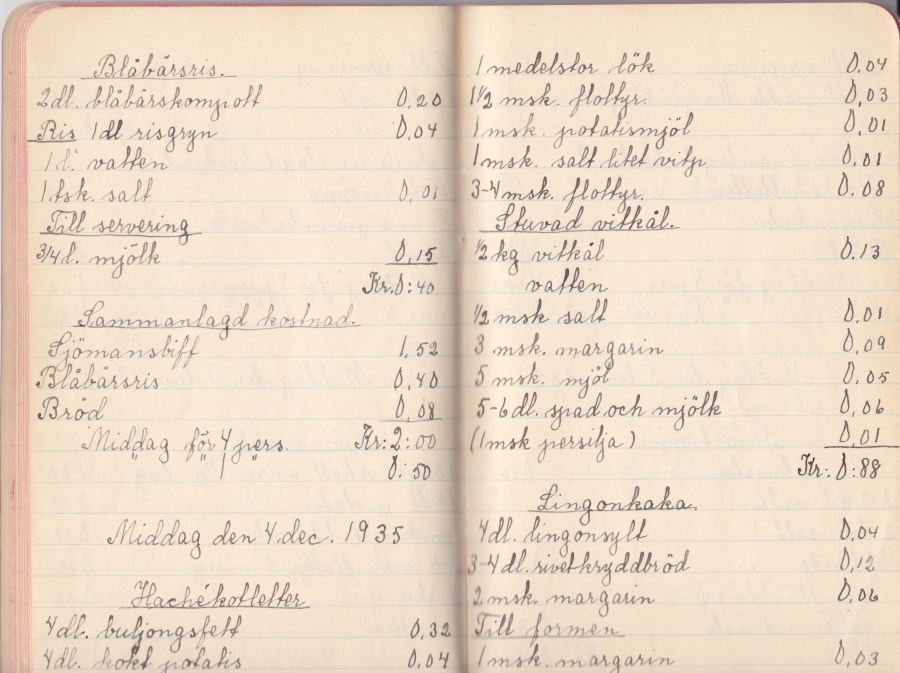 Blåbärsris.
2dl. blåbärskompott 0,20
Ris 1dl risgryn 0,04
1 d. vatten
1 tsk. salt 0,01
Till servering
3/4 l. mjölk 0,15
Kr. 0:40
Sammanlagd kostnad.
Sjömansbiff 1.52
Blåbärsris 0,40
Bröd 0,08
Middag för 4 pers. Kr: 2:00
" " 1 " 0:50
Middag den 4 dec. 1935
Hachékotletter
4dl. buljongsfett 0,32
4dl. kokt potatis 0,04
1 medelstor lök 0.04
1 1/2 msk. flottyr. 0,03
1 msk. potatismjöl 0,01
1 msk. salt litet vitp 0,01
3-4 msk. flottyr. 0.08
Stuvad vitkål.
1/2 kg vitkål 0.13
vatten
1/2 msk salt 0.01
3 msk. margarin 0,09
5 msk. mjöl 0,05
5-6 dl. spad och mjölk 0,06
(1 msk persilja) 0,01
Kr: 0:88
Lingonkaka.
4dl. lingonsylt 0.04
3-4 dl. rivet kryddbröd 0,12
2 msk. margarin 0,06
Till formen
1 msk. margarin 0,03